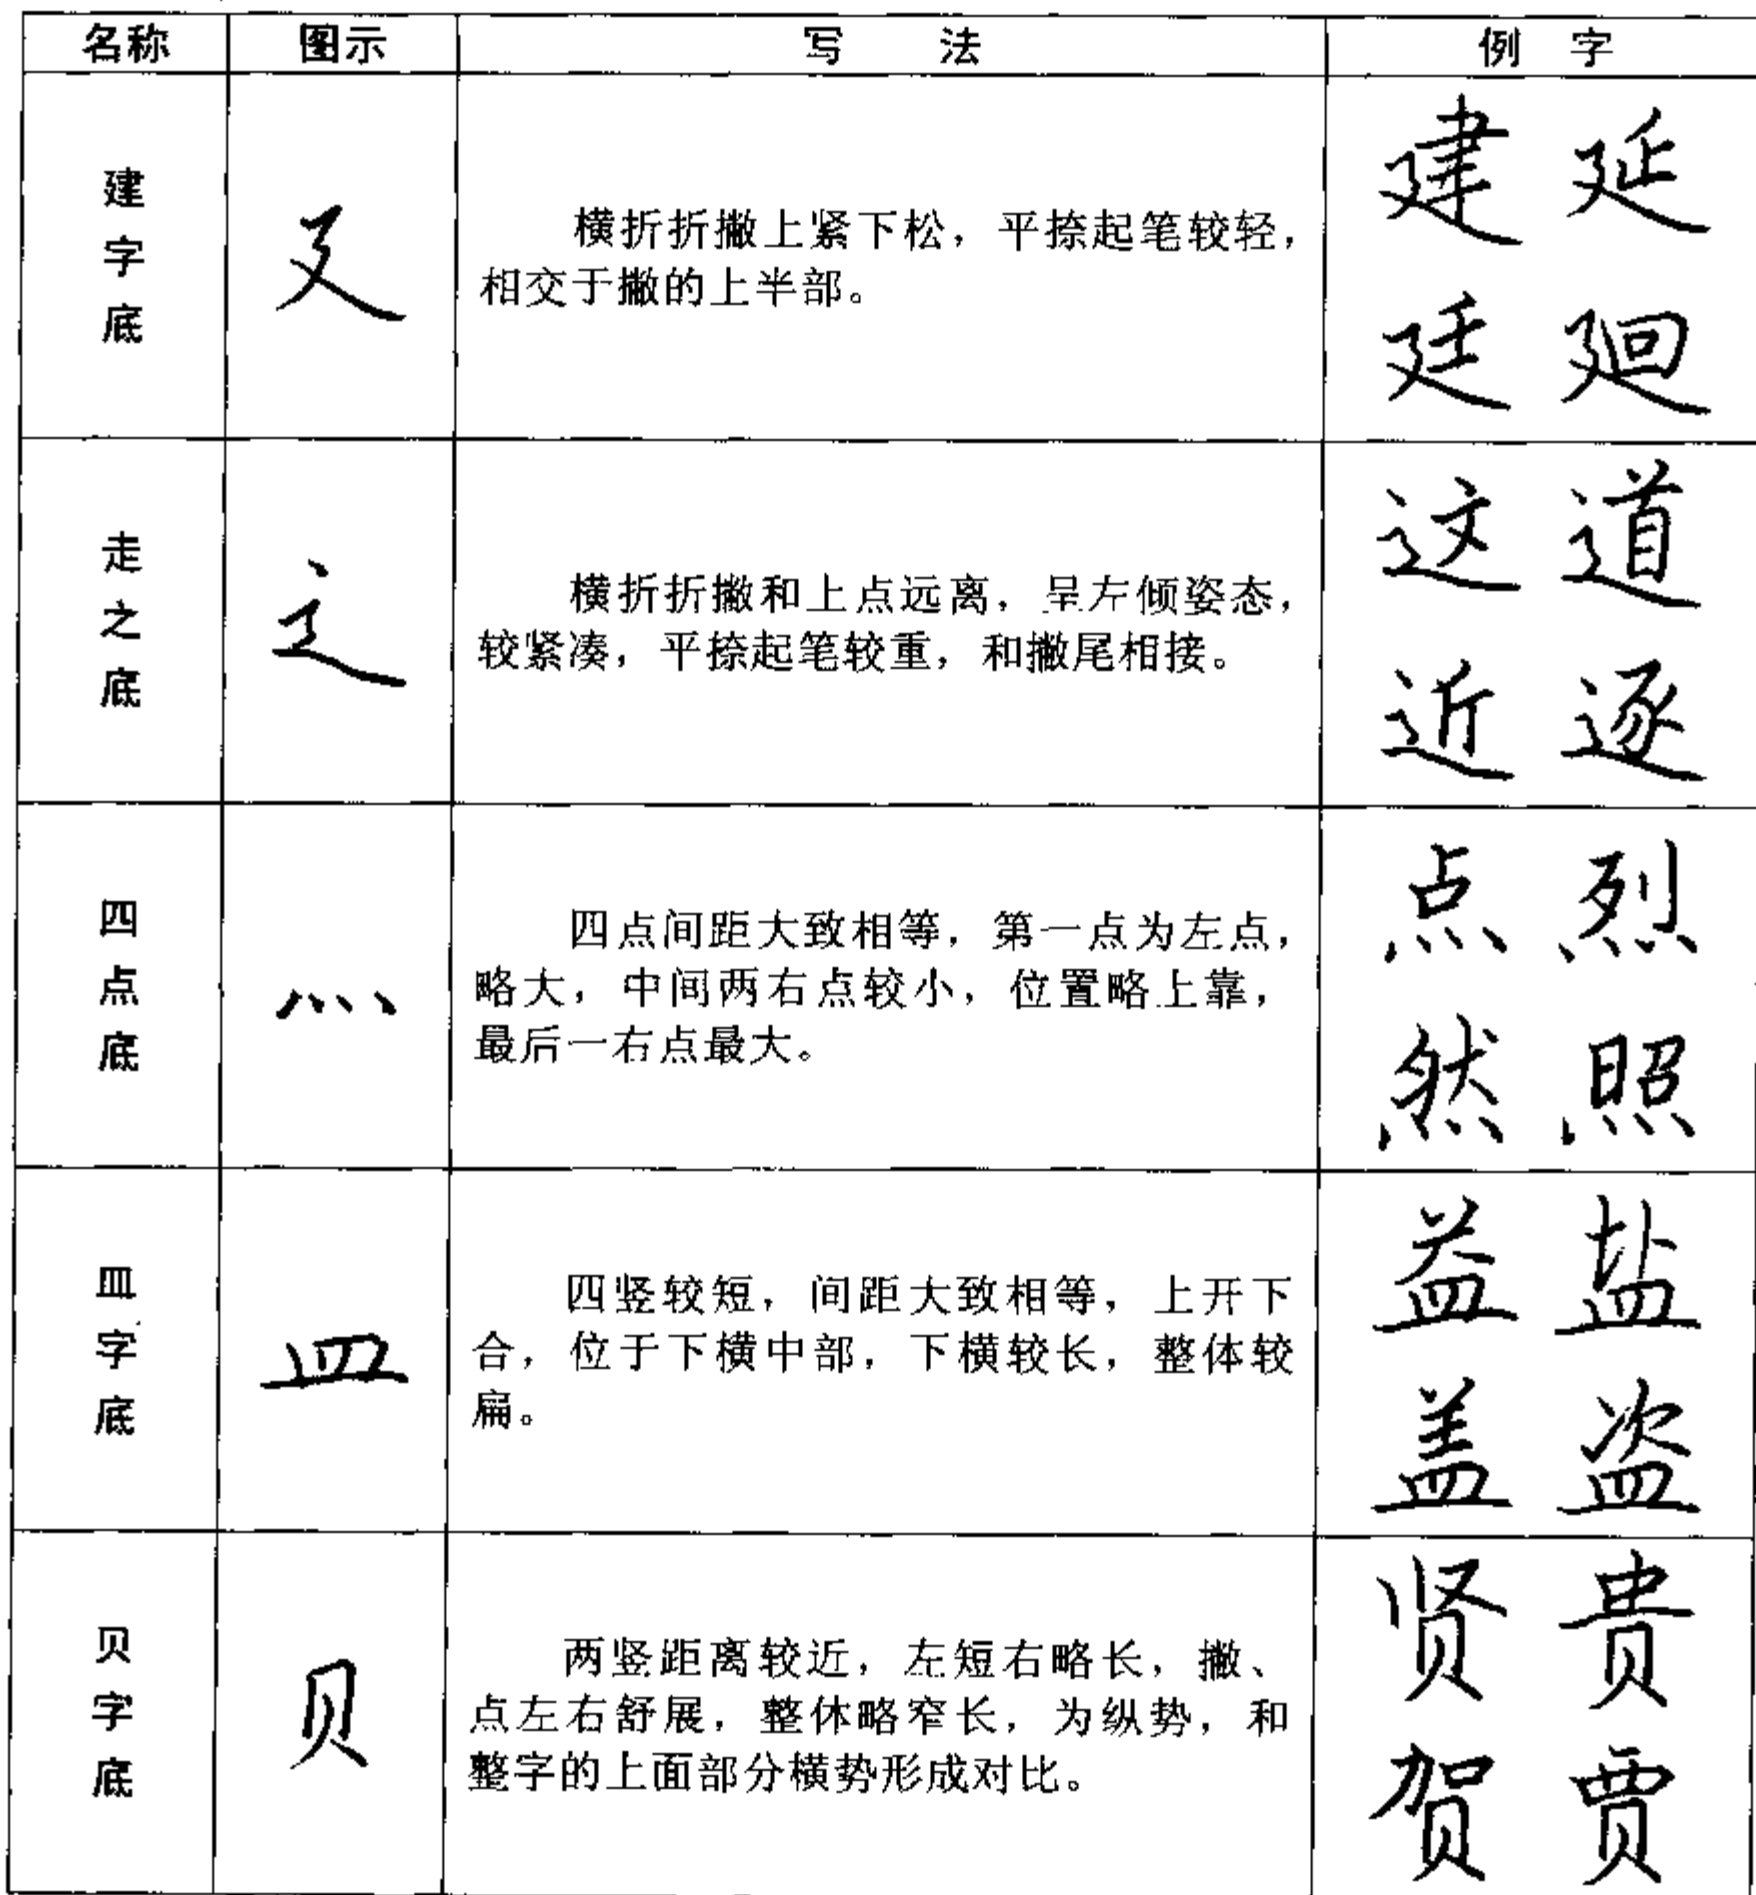 名称 图示 写 法 例 字
建字底
廴
横折折撇上紧下松，平捺起笔较轻，
相交于撇的上半部。
建 延
廷 廻
走之底
辶
横折折撇和上点远离，呈左倾姿态，
较紧凑，平捺起笔较重，和撇尾相接。
这 道
近 逐
四点底
灬
四点间距大致相等，第一点为左点，
略大，中间两右点较小，位置略上靠，
最后一右点最大。
点 烈
然 照
皿字底
皿
四竖较短，间距大致相等，上开下
合，位于下横中部，下横较长，整体较
扁。
益 盐
盖 盗
贝字底
贝
两竖距离较近，左短右略长，撇、
点左右舒展，整体略窄长，为纵势，和
整字的上面部分横势形成对比。
贤 贵
贺 贾